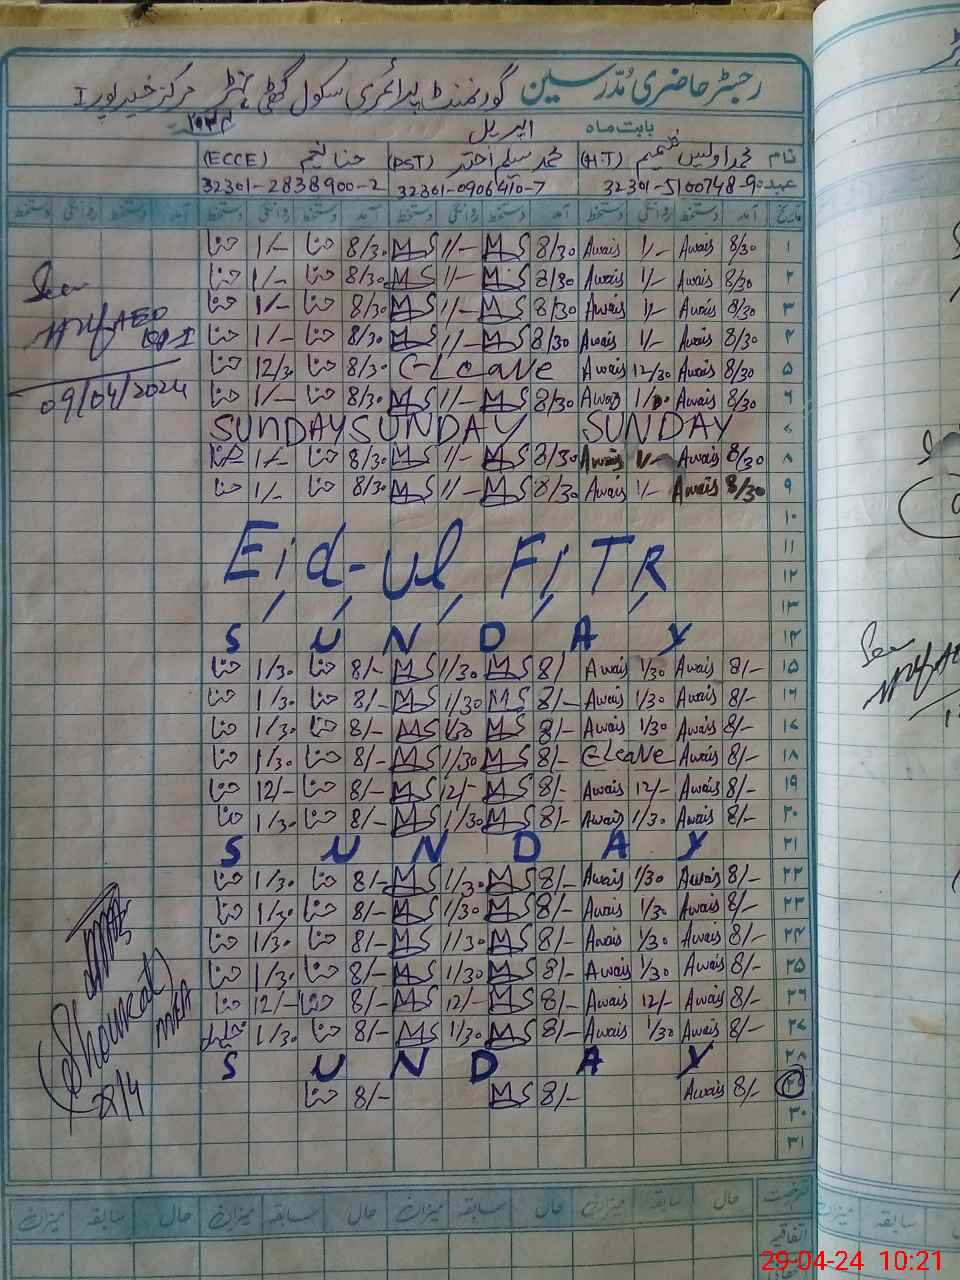 رجسٹر حاضری مدرسین گورنمنٹ پرائمری سکول مرکز خیرپور I
بابت ماہ اپریل
نام محمد اویس (H.T) محمد سلیم اختر (PST) حنا نجم (ECCE)
عہدہ 32301-5100748-9 32301-0906410-7 32301-2838900-2
تاریخ آمد دستخط روانگی دستخط آمد دستخط روانگی دستخط آمد دستخط روانگی دستخط آمد دستخط روانگی دستخط
۱ 8/30 Awais 1/- Awais 8/30 MS 1/- MS 8/30 حنا 1/- حنا
۲ 8/30 Awais 1/- Awais 8/30 MS 1/- MS 8/30 حنا 1/- حنا
۳ 8/30 Awais 1/- Awais 8/30 MS 1/- MS 8/30 حنا 1/- حنا
۴ 8/30 Awais 1/- Awais 8/30 MS 1/- MS 8/30 حنا 1/- حنا
۵ 8/30 Awais 12/30 Awais C-Leave 8/30 حنا 12/30 حنا
۶ 8/30 Awais 1/30 Awais 8/30 MS 1/- MS 8/30 حنا 1/- حنا
۷ SUNDAY SUNDAY SUNDAY
۸ 8/30 Awais 1/- Awais 8/30 MS 1/- MS 8/30 حنا 1/- حنا
۹ 8/30 Awais 1/- Awais 8/30 MS 1/- MS 8/30 حنا 1/- حنا
۱۰
۱۱
Eid-Ul FiTR
۱۲
۱۳
۱۴ SUNDAY
۱۵ 8/- Awais 1/30 Awais 8/ MS 1/30 MS 8/- حنا 1/30 حنا
۱۶ 8/- Awais 1/30 Awais 8/- MS 1/30 MS 8/- حنا 1/30 حنا
۱۷ 8/- Awais 1/30 Awais 8/- MS 1/30 MS 8/- حنا 1/30 حنا
۱۸ 8/- Awais C-Leave 8/- MS 1/30 MS 8/- حنا 1/30 حنا
۱۹ 8/- Awais 12/- Awais 8/- MS 12/- MS 8/- حنا 12/- حنا
۲۰ 8/- Awais 1/30 Awais 8/- MS 1/30 MS 8/- حنا 1/30 حنا
۲۱ SUNDAY
۲۲ 8/- Awais 1/30 Awais 8/- MS 1/30 MS 8/- حنا 1/30 حنا
۲۳ 8/- Awais 1/30 Awais 8/- MS 1/30 MS 8/- حنا 1/30 حنا
۲۴ 8/- Awais 1/30 Awais 8/- MS 1/30 MS 8/- حنا 1/30 حنا
۲۵ 8/- Awais 1/30 Awais 8/- MS 1/30 MS 8/- حنا 1/30 حنا
۲۶ 8/- Awais 12/- Awais 8/- MS 12/- MS 8/- حنا 12/- حنا
۲۷ 8/- Awais 1/30 Awais 8/- MS 1/30 MS 8/- حنا 1/30
۲۸ SUNDAY
۲۹ 8/- Awais 8/- MS 8/- حنا
۳۰
۳۱
Seen
AEO
09/04/2024
Shoukat
MEA
رخصت حال سابقہ میزان حال سابقہ میزان حال سابقہ میزان حال سابقہ میزان
اتفاقیہ
29-04-24 10:21